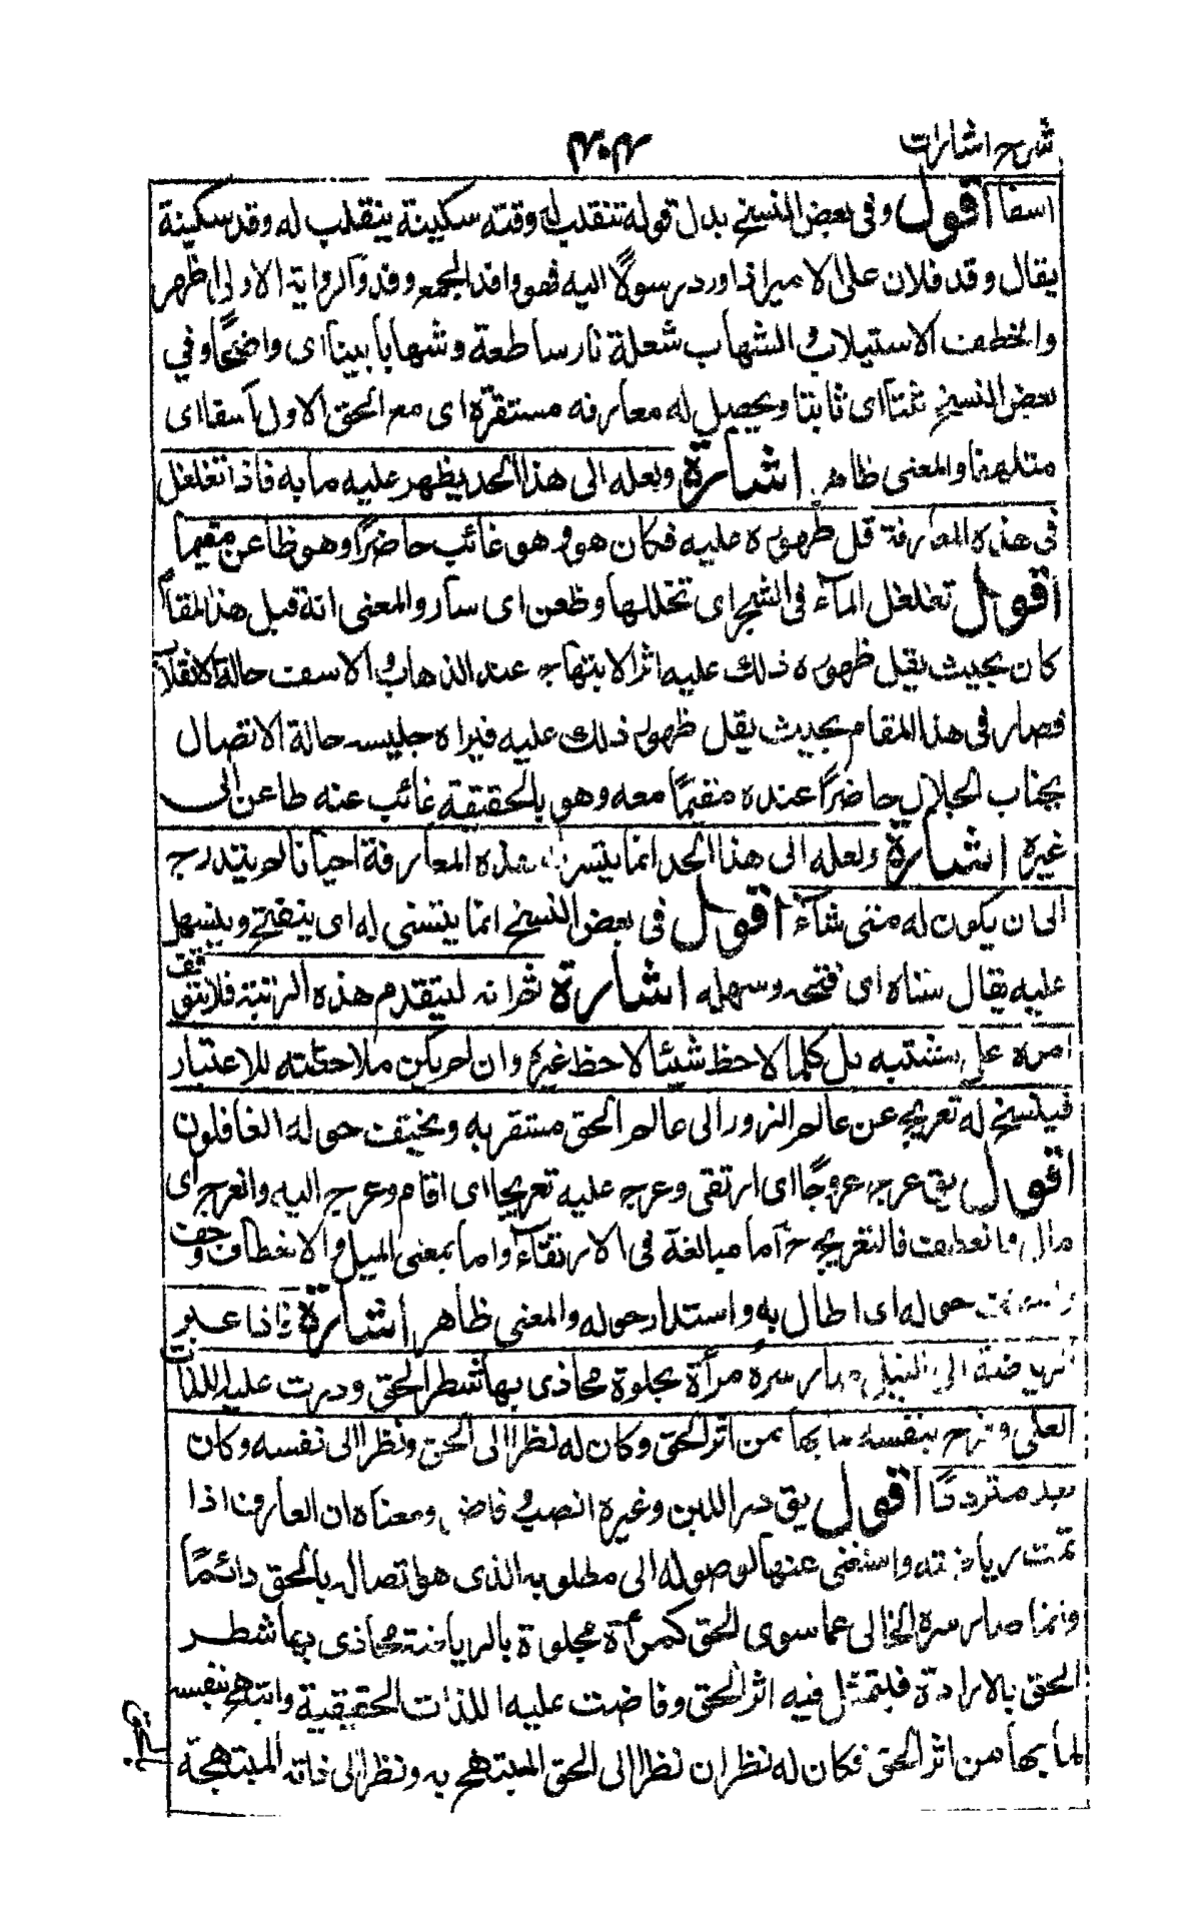 شرح اشارات
۴۰۴
اسفا اقول وفى بعض النسخ بدل قوله تنقلب له وقته سكينة ينقلب له وقد سكينة
يقال وفد فلان على الامير اذا ورد رسولًا اليه فهو وافد الجمع وفد والرواية الاولى اظهر
والخطف الاستيلاب والشهاب شعلة نار ساطعة وشهابا بينا اى واضحًا وفي
بعض النسخ ثبتا اى ثابتا ويحصل له معارفه مستقرة اى مع الحق الاول اسفا اى
متلهفا والمعنى ظاهر اشارة ولعله الى هذا الحد يظهر عليه ما به فاذا تغلغل
فى هذه المعارفة قل ظهوره عليه فكان هو وهو غائب حاضرًا وهو ظاعن مقيما
اقول تغلغل المآء فى الشجر اى تخللها وظعن اى سار والمعنى انه قبل هذا المقاا
كان بحيث يقل ظهوره ذلك عليه اثر الابتهاج عند الذهاب والاسف حالة الانقلا
فصار فى هذا المقام بحيث يقل ظهور ذلك عليه فيراه جليسه حالة الاتصال
بجناب الجلال حاضرًا عنده مقيمًا معه وهو بالحقيقة غائب عنه ظاعن الى
غيره اشارة ولعله الى هذا الحد انما يتيسر له هذه المعارفة احيانا ثم يتدرج
الى ان يكون له متى شآء اقول فى بعض النسخ انما يتسنى له اى ينفتح ويتسهل
عليه يقال سناه اى فتحه وسهله اشارة ثم انه ليتقدم هذه الرتبة فلا يتوقف
امره على مشتبه بل كلما لاحظ شيئا لاحظ غيره وان لم يكن ملاحظته للاعتبار
فيلسنح له تعريج عن عالم الزور الى عالم الحق مستقر به ويحتف حوله الغافلون
اقول يق عرج عروجًا اى ارتقى وعرج عليه تعريجا اى اقام وعرج اليه وانعرج اى
مال وانعطف فالتعريج ح اما مبالغة فى الارتقآء واما بمعنى الميل والانعطاف وحف
واحتف حوله اى اطال به واستدار حوله والمعنى ظاهر اشارة فاذا عبر
الرياضة الى النيل صار سره مرأة مجلوة محاذى بها شطر الحق ودرت عليه اللذات
العلى وفرح بنفسه ما بها من اثر الحق وكان له نظر الى الحق ونظر الى نفسه وكان
بعد مترددًا اقول يق در اللبن وغيره انصب وفاض ومعناه ان العارف اذا
تمت رياضته واستغنى عنها لوصوله الى مطلوبه الذى هو اتصاله بالحق دائمًا
وانما صار سره الخالى عما سوى الحق كمرأة مجلوة بالرياضة محاذى بها شطر
الحق بالارادة فليتمثل فيه اثر الحق وفاضت عليه اللذات الحقيقية وابتهج بنفسه
لما بها من اثر الحق فكان له نظران نظر الى الحق المبتهج به ونظر الى ذاته المبتهجة